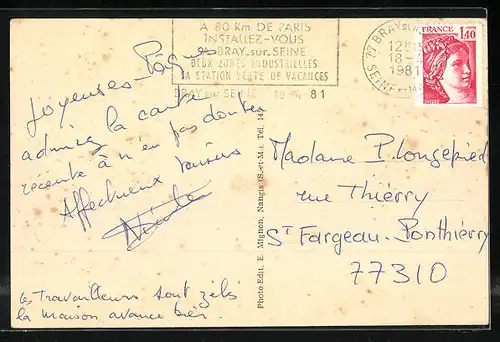 A 80 Km DE PARIS
INSTALLEZ-VOUS
A BRAY-sur-SEINE
DEUX ZONES INDUSTRIELLES
SA STATION VERTE DE VACANCES
BRAY sur SEINE 18-4 81
77 BRAY sur
12
18-4
1981
SEINE et M
FRANCE
1,40
Joyeuses Pâques
admirez la carte
récente à n'en pas douter
Affectueux baisers
Nicole
Les Travailleurs sont zélés
la maison avance bien.
Photo-Edit. E. Mignon, Nangis (S.-et-M.), Tél. 14
Madame P. Longepied
rue Thierry
St Fargeau-Ponthierry
77310